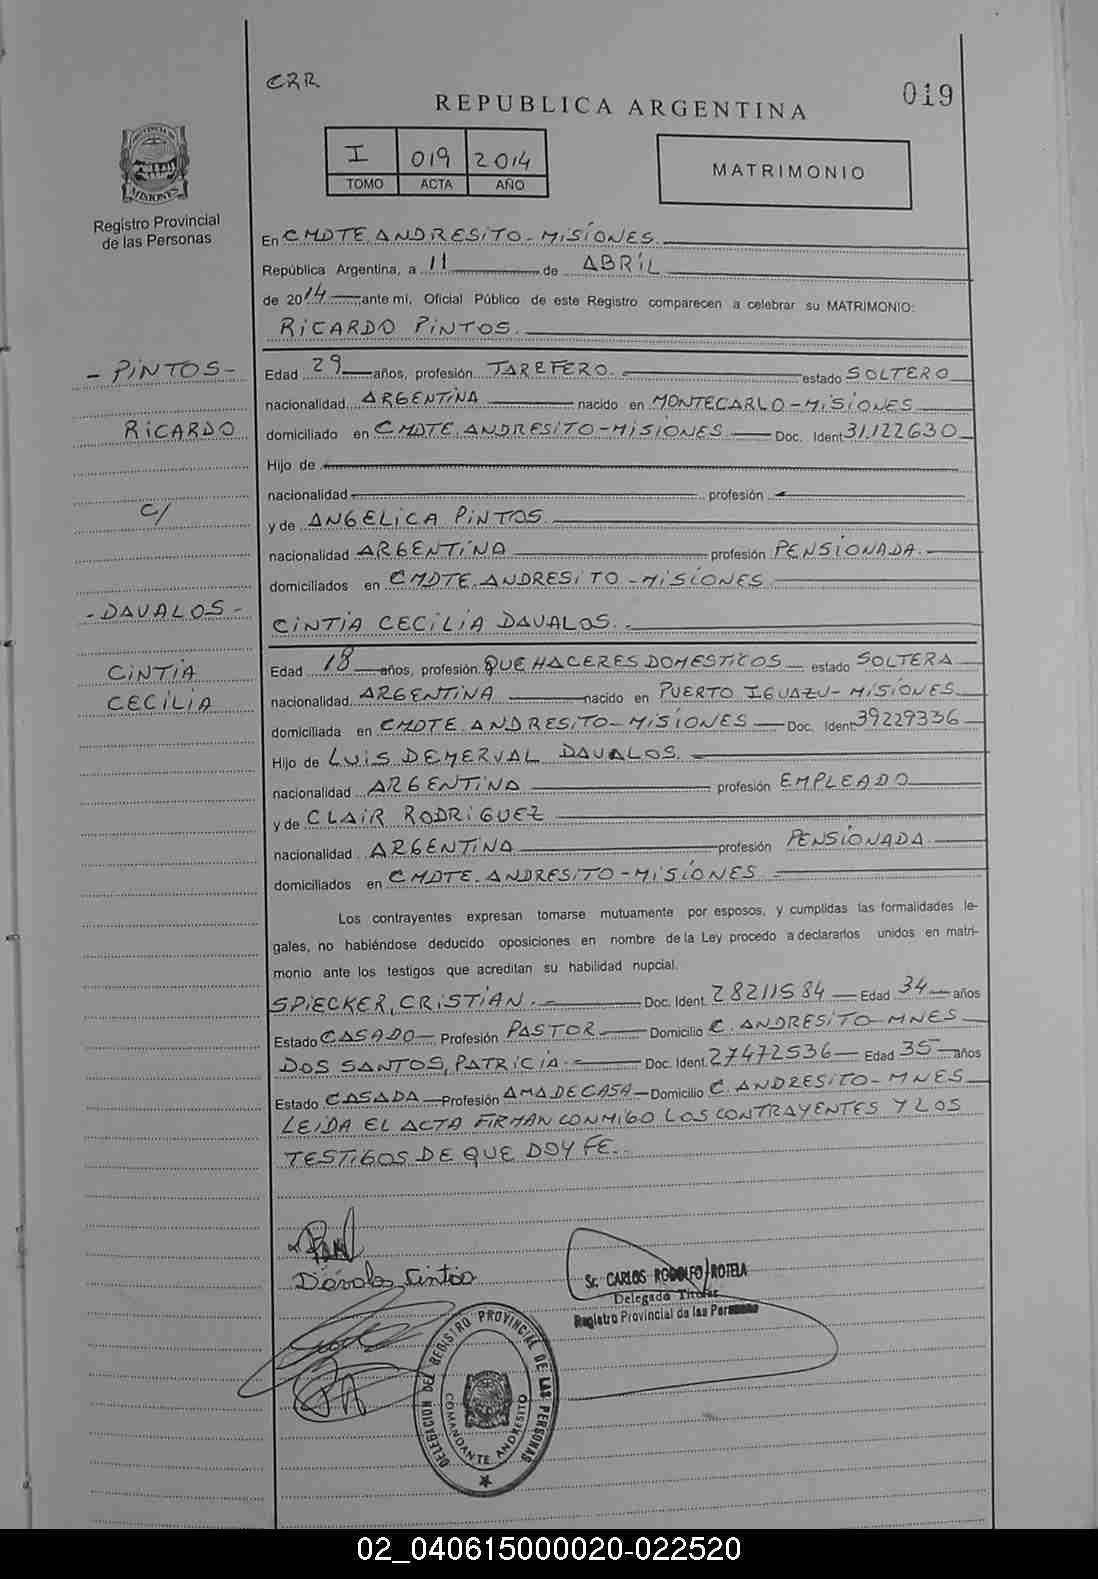 CRR
019
REPUBLICA ARGENTINA
I 019 2014
TOMO ACTA AÑO
MATRIMONIO
PROVINCIA DE MISIONES
Registro Provincial
de las Personas
En CMDTE. ANDRESITO - MISIONES.
República Argentina, a 11 de ABRIL
de 2014 ante mí, Oficial Público de este Registro comparecen a celebrar su MATRIMONIO:
RICARDO PINTOS.
- PINTOS -
Edad 29 años, profesión TAREFERO. estado SOLTERO
nacionalidad ARGENTINA nacido en MONTECARLO - MISIONES
RICARDO
domiciliado en CMDTE. ANDRESITO - MISIONES Doc. Ident 31.122630
Hijo de
nacionalidad profesión
C/
y de ANGELICA PINTOS
nacionalidad ARGENTINA profesión PENSIONADA.
domiciliados en CMDTE. ANDRESITO - MISIONES
- DAVALOS -
CINTIA CECILIA DAVALOS.
CINTIA
Edad 18 años, profesión QUE HACERES DOMESTICOS estado SOLTERA
CECILIA
nacionalidad ARGENTINA nacido en PUERTO IGUAZU - MISIONES
domiciliada en CMDTE. ANDRESITO - MISIONES Doc. Ident 39229336
Hijo de LUIS DEMERVAL DAVALOS.
nacionalidad ARGENTINA profesión EMPLEADO
y de CLAIR RODRIGUEZ
nacionalidad ARGENTINA profesión PENSIONADA
domiciliados en CMDTE. ANDRESITO - MISIONES
Los contrayentes expresan tomarse mutuamente por esposos, y cumplidas las formalidades le-
gales, no habiéndose deducido oposiciones en nombre de la Ley procedo a declararlos unidos en matri-
monio ante los testigos que acreditan su habilidad nupcial.
SPIECKER, CRISTIAN. Doc. Ident. 28211584 Edad 34 años
Estado CASADO Profesión PASTOR Domicilio C. ANDRESITO - MNES
DOS SANTOS, PATRICIA Doc. Ident. 27472536 Edad 35 años
Estado CASADA Profesión AMA DE CASA Domicilio C. ANDRESITO - MNES
LEIDA EL ACTA FIRMAN CONMIGO LOS CONTRAYENTES Y LOS
TESTIGOS DE QUE DOY FE.
Dávalos, Cintia
Sr. CARLOS RODOLFO ROTELA
Delegado Titular
Registro Provincial de las Personas
DELEGACION DEL REGISTRO PROVINCIAL DE LAS PERSONAS
COMANDANTE ANDRESITO
02_040615000020-022520